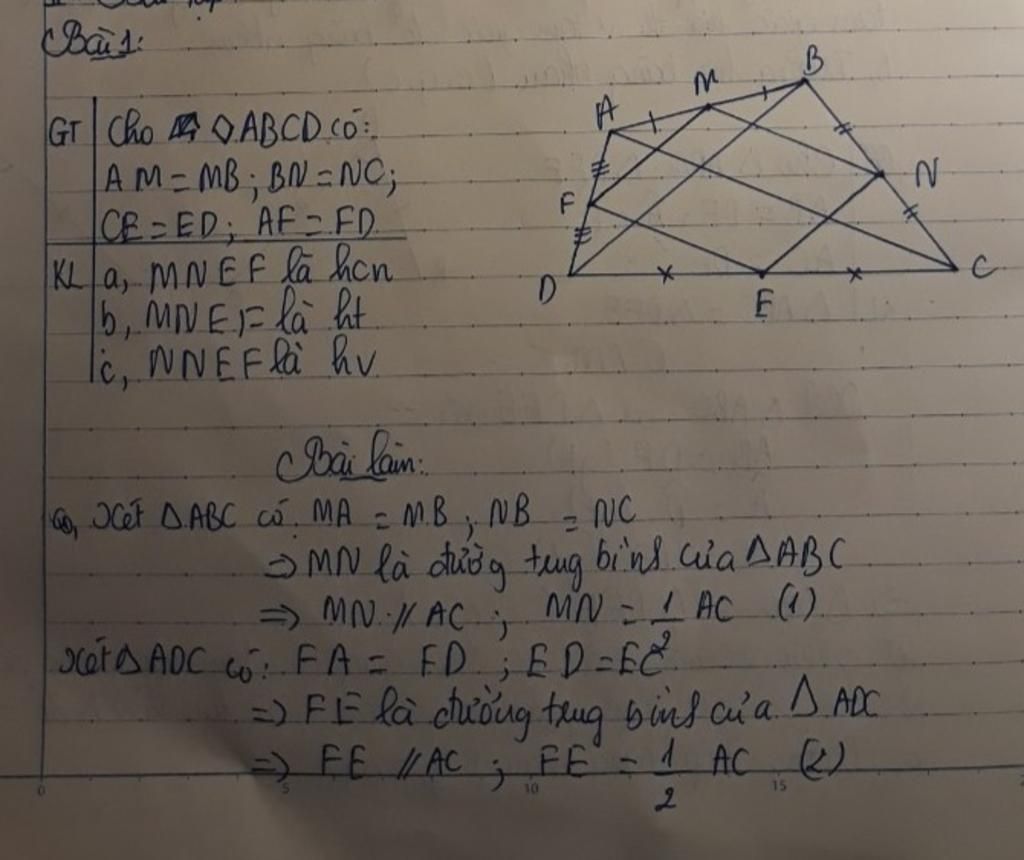 Bài 1:
GT Cho ◇ABCD có:
AM = MB; BN = NC;
CE = ED; AF = FD
KL a, MNEF là hcn
b, MNEF là ht
c, MNEF là hv
A M B
F N
D E C
Bài làm:
a, Xét ΔABC có MA = MB; NB = NC
=> MN là đường trung bình của ΔABC
=> MN // AC; MN = 1/2 AC (1)
Xét ΔADC có: FA = FD; ED = EC
=> FE là đường trung bình của ΔADC
=> FE // AC; FE = 1/2 AC (2)
0 5 10 15